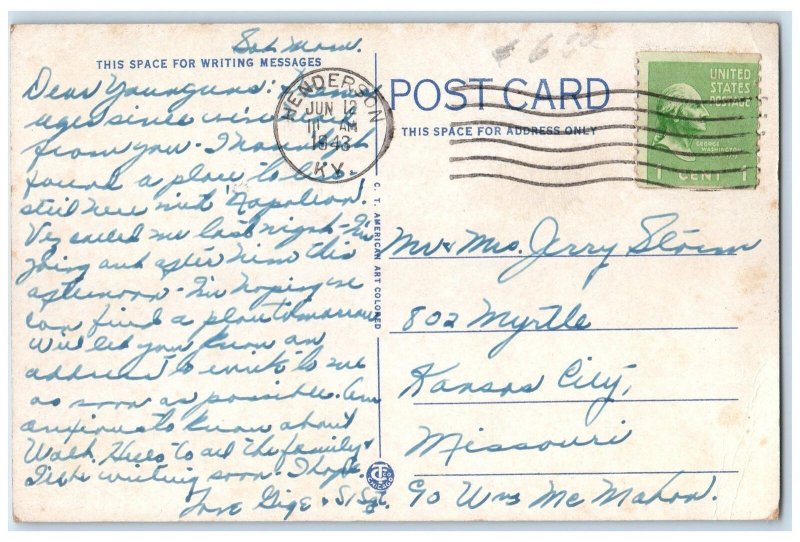 Sat Morn.
THIS SPACE FOR WRITING MESSAGES
Dear Younguns:
ages since we've
from you. I haven't
found a place to
still here with Napoleon.
Vez called me last night - I'm
going out after him this
afternoon - I'm hoping we
can find a place tomorrow
will let you know an
address to write to me
as soon as possible. Am
anxious to know about
Walt. Hello to all the family &
I'll be writing soon. I hope.
Love Gige + S/Sgt.
C. T. AMERICAN ART COLORED
HENDERSON
JUN 12
AM
1943
KY.
POST CARD
THIS SPACE FOR ADDRESS ONLY
UNITED
STATES
POSTAGE
GEORGE
WASHINGTON
1 CENT 1
Mr & Mrs. Jerry
802 Myrtle
Kansas City,
Missouri
c/o Wm McMahon.